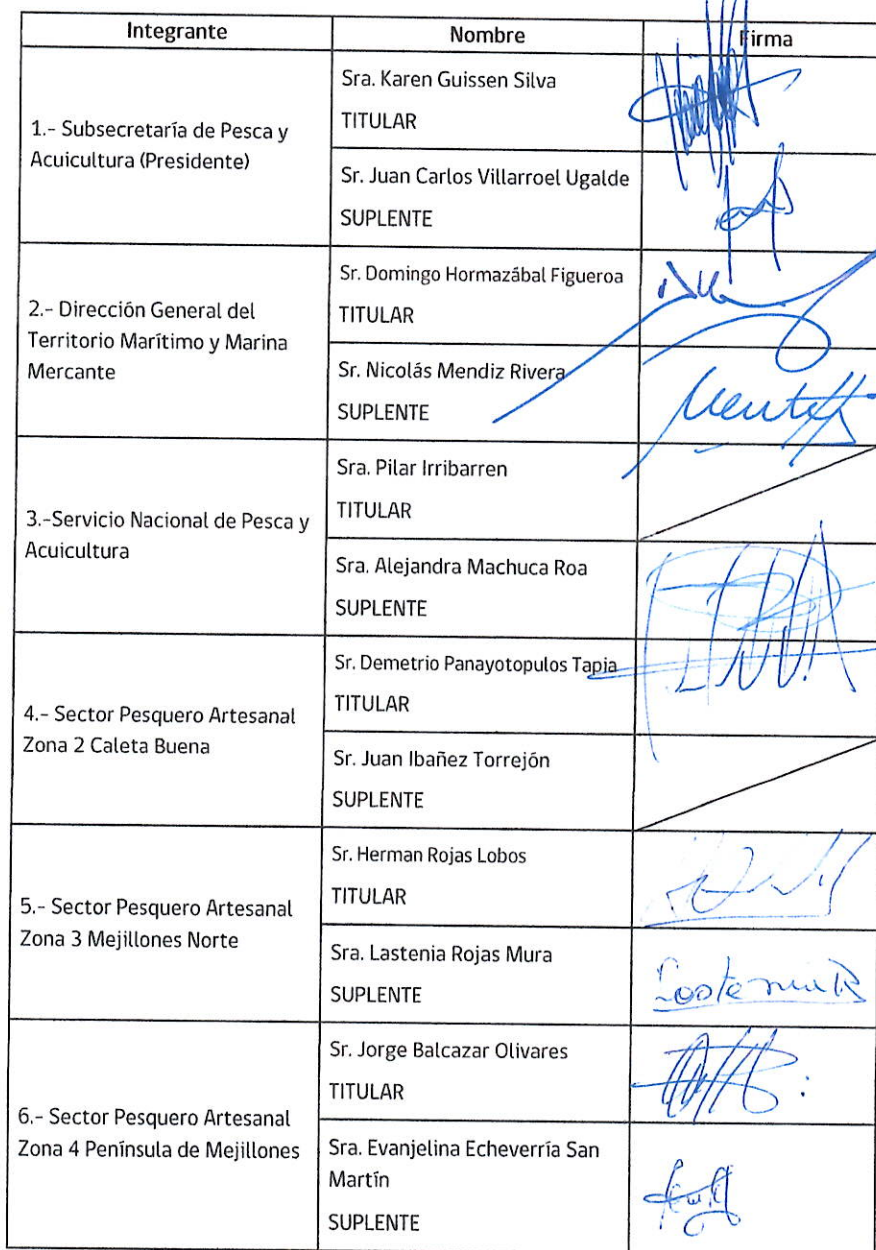 Integrante Nombre Firma
1.- Subsecretaría de Pesca y
Acuicultura (Presidente)
Sra. Karen Guissen Silva
TITULAR
Sr. Juan Carlos Villarroel Ugalde
SUPLENTE
2.- Dirección General del
Territorio Marítimo y Marina
Mercante
Sr. Domingo Hormazábal Figueroa
TITULAR
Sr. Nicolás Mendiz Rivera
SUPLENTE
3.-Servicio Nacional de Pesca y
Acuicultura
Sra. Pilar Irribarren
TITULAR
Sra. Alejandra Machuca Roa
SUPLENTE
4.- Sector Pesquero Artesanal
Zona 2 Caleta Buena
Sr. Demetrio Panayotopulos Tapia
TITULAR
Sr. Juan Ibañez Torrejón
SUPLENTE
5.- Sector Pesquero Artesanal
Zona 3 Mejillones Norte
Sr. Herman Rojas Lobos
TITULAR
Sra. Lastenia Rojas Mura
SUPLENTE
6.- Sector Pesquero Artesanal
Zona 4 Península de Mejillones
Sr. Jorge Balcazar Olivares
TITULAR
Sra. Evanjelina Echeverría San
Martín
SUPLENTE